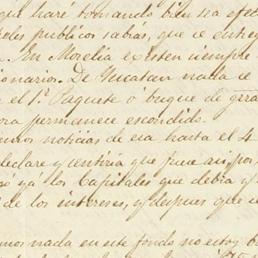 que haré tomando bien sea efect
eles publicos sabras, que se entreg
. En Morelia existen siempre
cionarios. De Yucatan nada se
e el 1.º Paquete ó buque de gira
ora permanece escondido.
mos noticias de esa hasta el 4
declare y sentiria que fuese así, por
só ya los Capitales que debia y
de los intereses, y despues que se
mos nada en este fondo no estoy